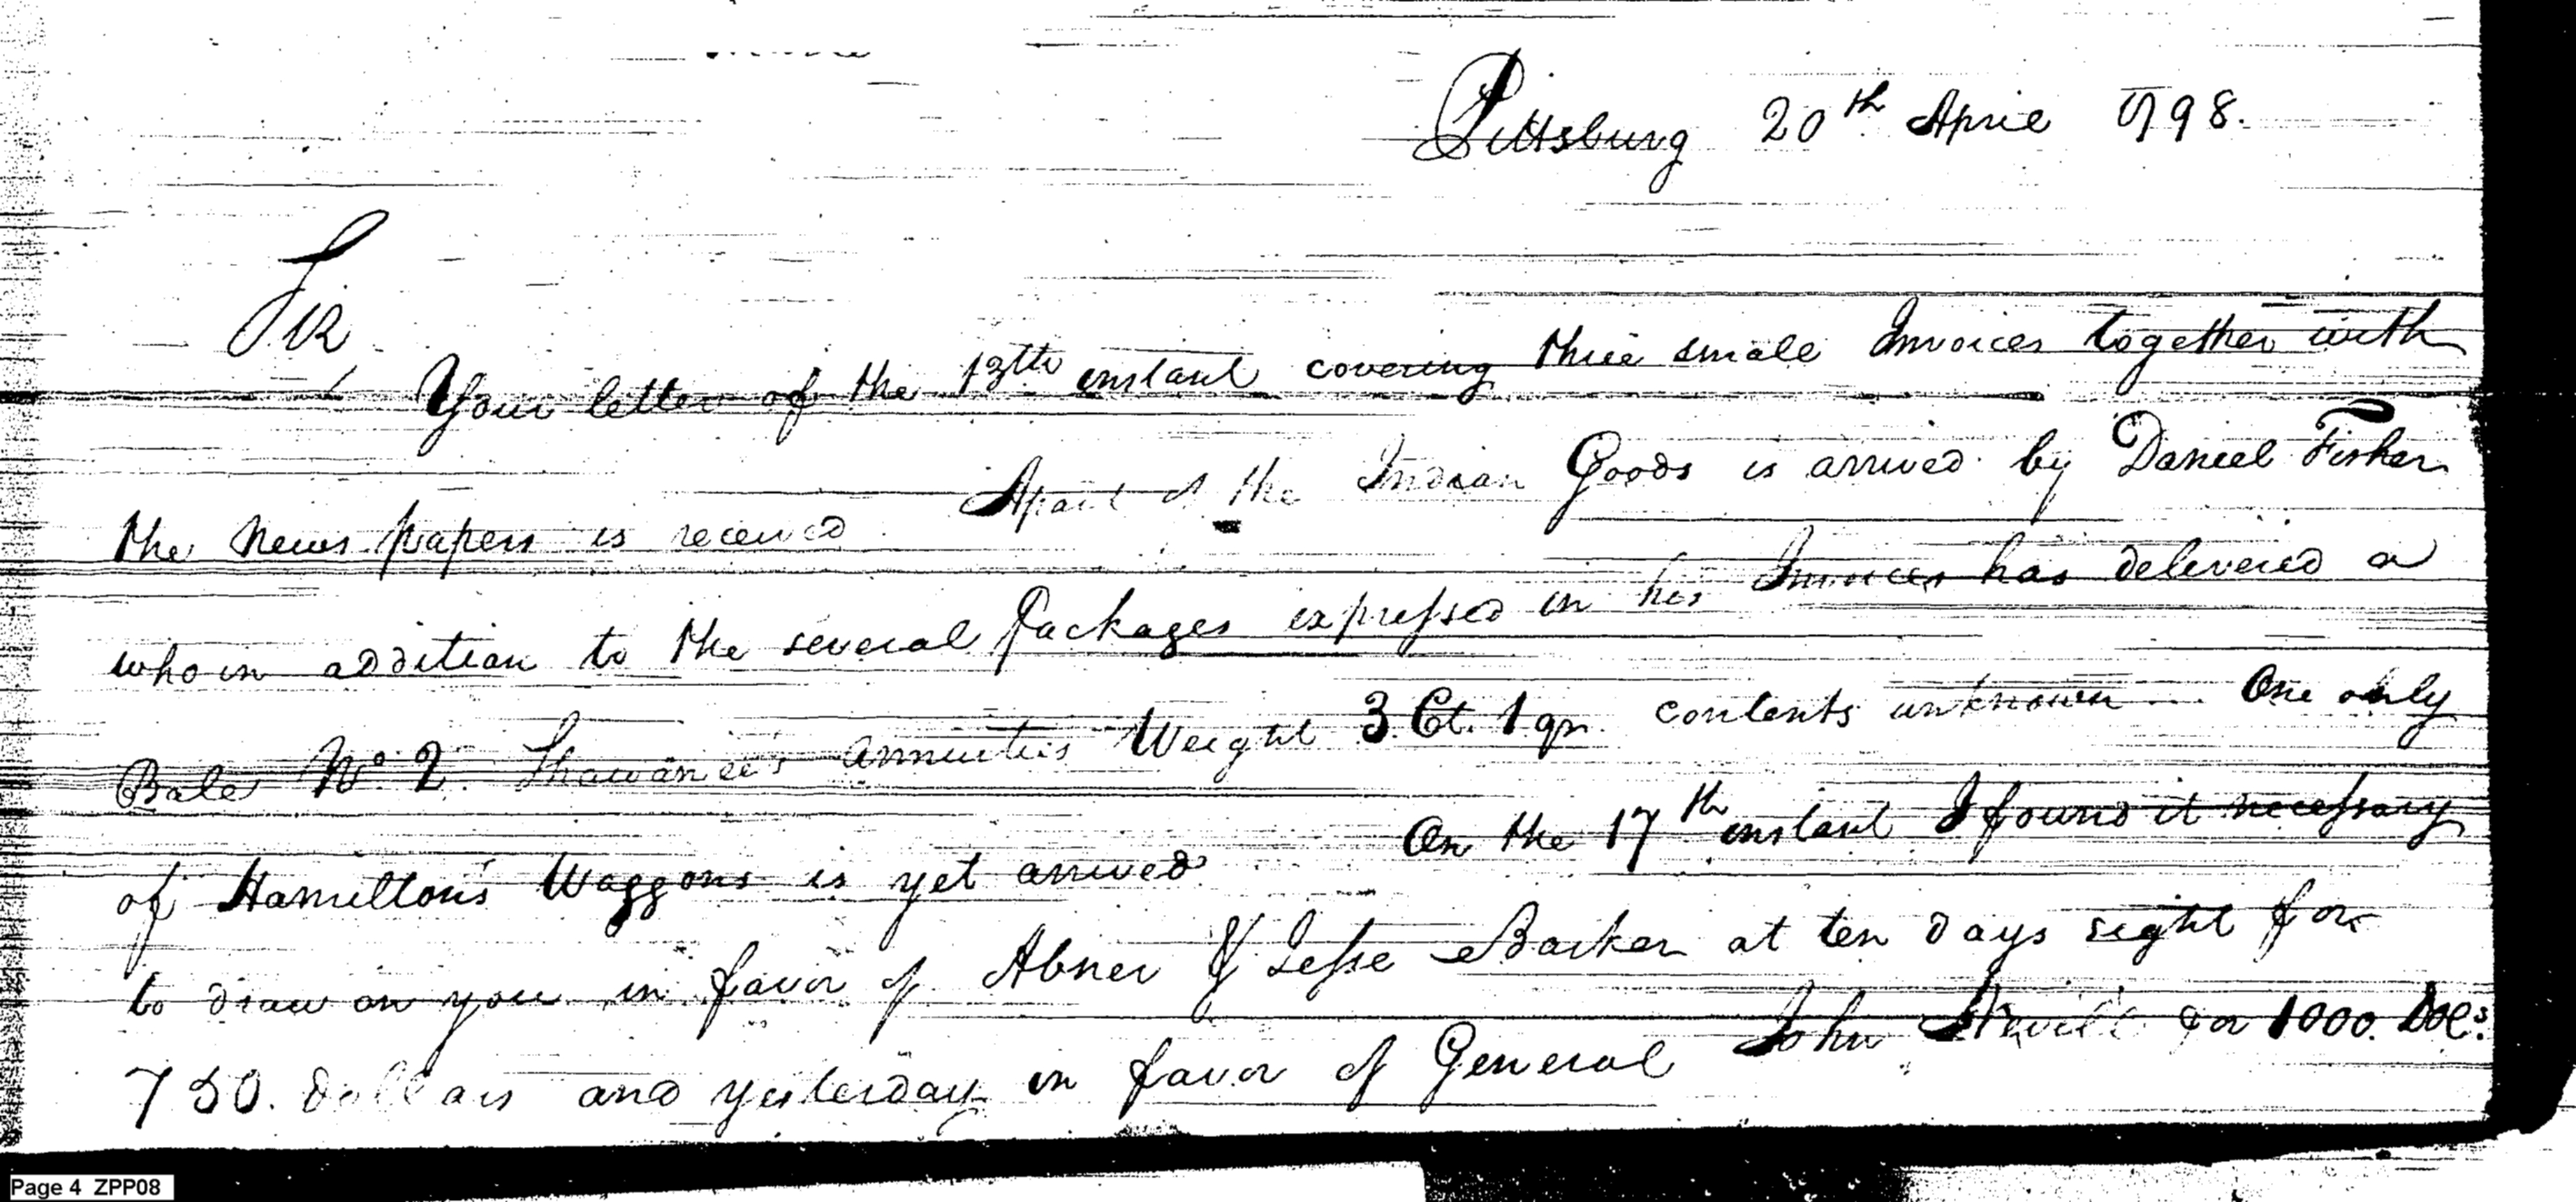 Pittsburg 20th April 1798.
Sir
Your letter of the 13th instant covering three small Invoices together with
the News papers is received Apart of the Indian Goods is arrived by Daniel Fisher
who in addition to the several Packages expressed in his Invoices has delivered a
Bale No. 2. Shawanee's annuities Weight 3 Ct. 1 qr. contents unknown. One only
of Hamilton's Waggons is yet arrived On the 17th instant I found it necessary
to draw on you in favor of Abner & Jesse Barker at ten days sight for
750. dollars and yesterday in favor of General John Nevill for 1000. Dols.
Page 4 ZPP08